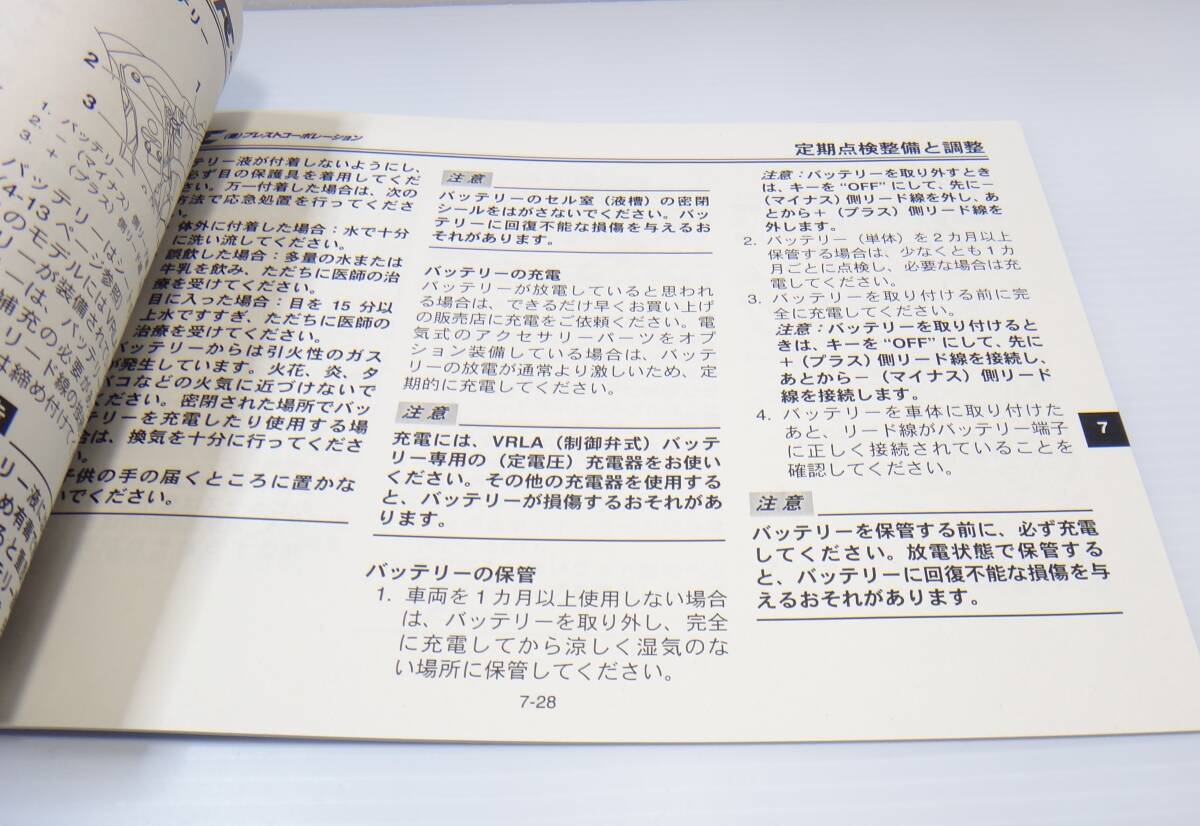 テリー
2
1
3
1. バッテリー
2. － (マイナス) 側リ
3. ＋ (プラス) 側リー
バッテリーはシ
4-13 ページ参照)
のモデルにはVR
リーが装備され
ーは、バッテリ
補充の必要が
リード線の接
は締め付けて
リー液
め有毒で
ると重
(株)プレストコーポレーション
定期点検整備と調整
テリー液が付着しないようにし、
必ず目の保護具を着用してくだ
さい。万一付着した場合は、次の
方法で応急処置を行ってくださ
い。
体外に付着した場合：水で十分
に洗い流してください。
誤飲した場合：多量の水または
牛乳を飲み、ただちに医師の治
療を受けてください。
目に入った場合：目を 15 分以
上水ですすぎ、ただちに医師の
治療を受けてください。
バッテリーからは引火性のガス
が発生しています。火花、炎、タ
バコなどの火気に近づけないで
ください。密閉された場所でバッ
テリーを充電したり使用する場
合は、換気を十分に行ってくださ
い。
子供の手の届くところに置かな
いでください。
注意
バッテリーのセル室（液槽）の密閉
シールをはがさないでください。バッ
テリーに回復不能な損傷を与えるお
それがあります。
バッテリーの充電
バッテリーが放電していると思われ
る場合は、できるだけ早くお買い上げ
の販売店に充電をご依頼ください。電
気式のアクセサリーパーツをオプ
ション装備している場合は、バッテ
リーの放電が通常より激しいため、定
期的に充電してください。
注意
充電には、VRLA（制御弁式）バッテ
リー専用の（定電圧）充電器をお使い
ください。その他の充電器を使用する
と、バッテリーが損傷するおそれがあ
ります。
バッテリーの保管
1. 車両を 1 カ月以上使用しない場合
は、バッテリーを取り外し、完全
に充電してから涼しく湿気のな
い場所に保管してください。
注意：バッテリーを取り外すとき
は、キーを“OFF”にして、先に－
（マイナス）側リード線を外し、あ
とから＋（プラス）側リード線を
外します。
2. バッテリー（単体）を 2 カ月以上
保管する場合は、少なくとも 1 カ
月ごとに点検し、必要な場合は充
電してください。
3. バッテリーを取り付ける前に完
全に充電してください。
注意：バッテリーを取り付けると
きは、キーを“OFF”にして、先に
＋（プラス）側リード線を接続し、
あとから－（マイナス）側リード
線を接続します。
4. バッテリーを車体に取り付けた
あと、リード線がバッテリー端子
に正しく接続されていることを
確認してください。
注意
バッテリーを保管する前に、必ず充電
してください。放電状態で保管する
と、バッテリーに回復不能な損傷を与
えるおそれがあります。
7
7-28